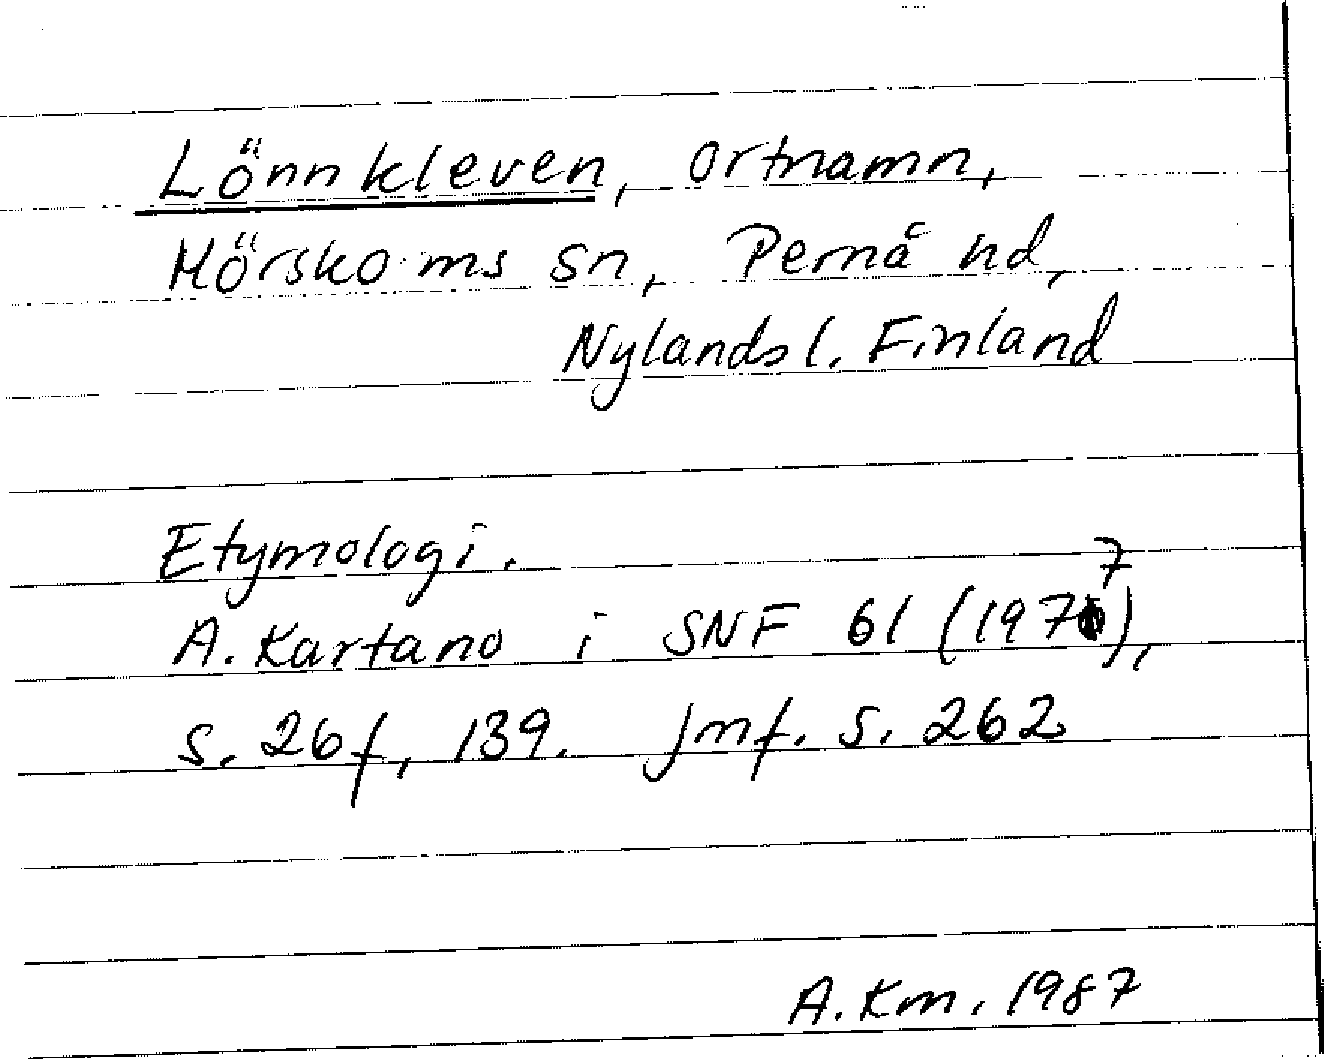 Lönnkleven, ortnamn,
Hörskoms sn, Pernå hd,
Nylands l. Finland
Etymologi.
A. Kartano i SNF 61 (1977),
s. 26 f, 139. Jmf. s. 262
A. Km. 1987